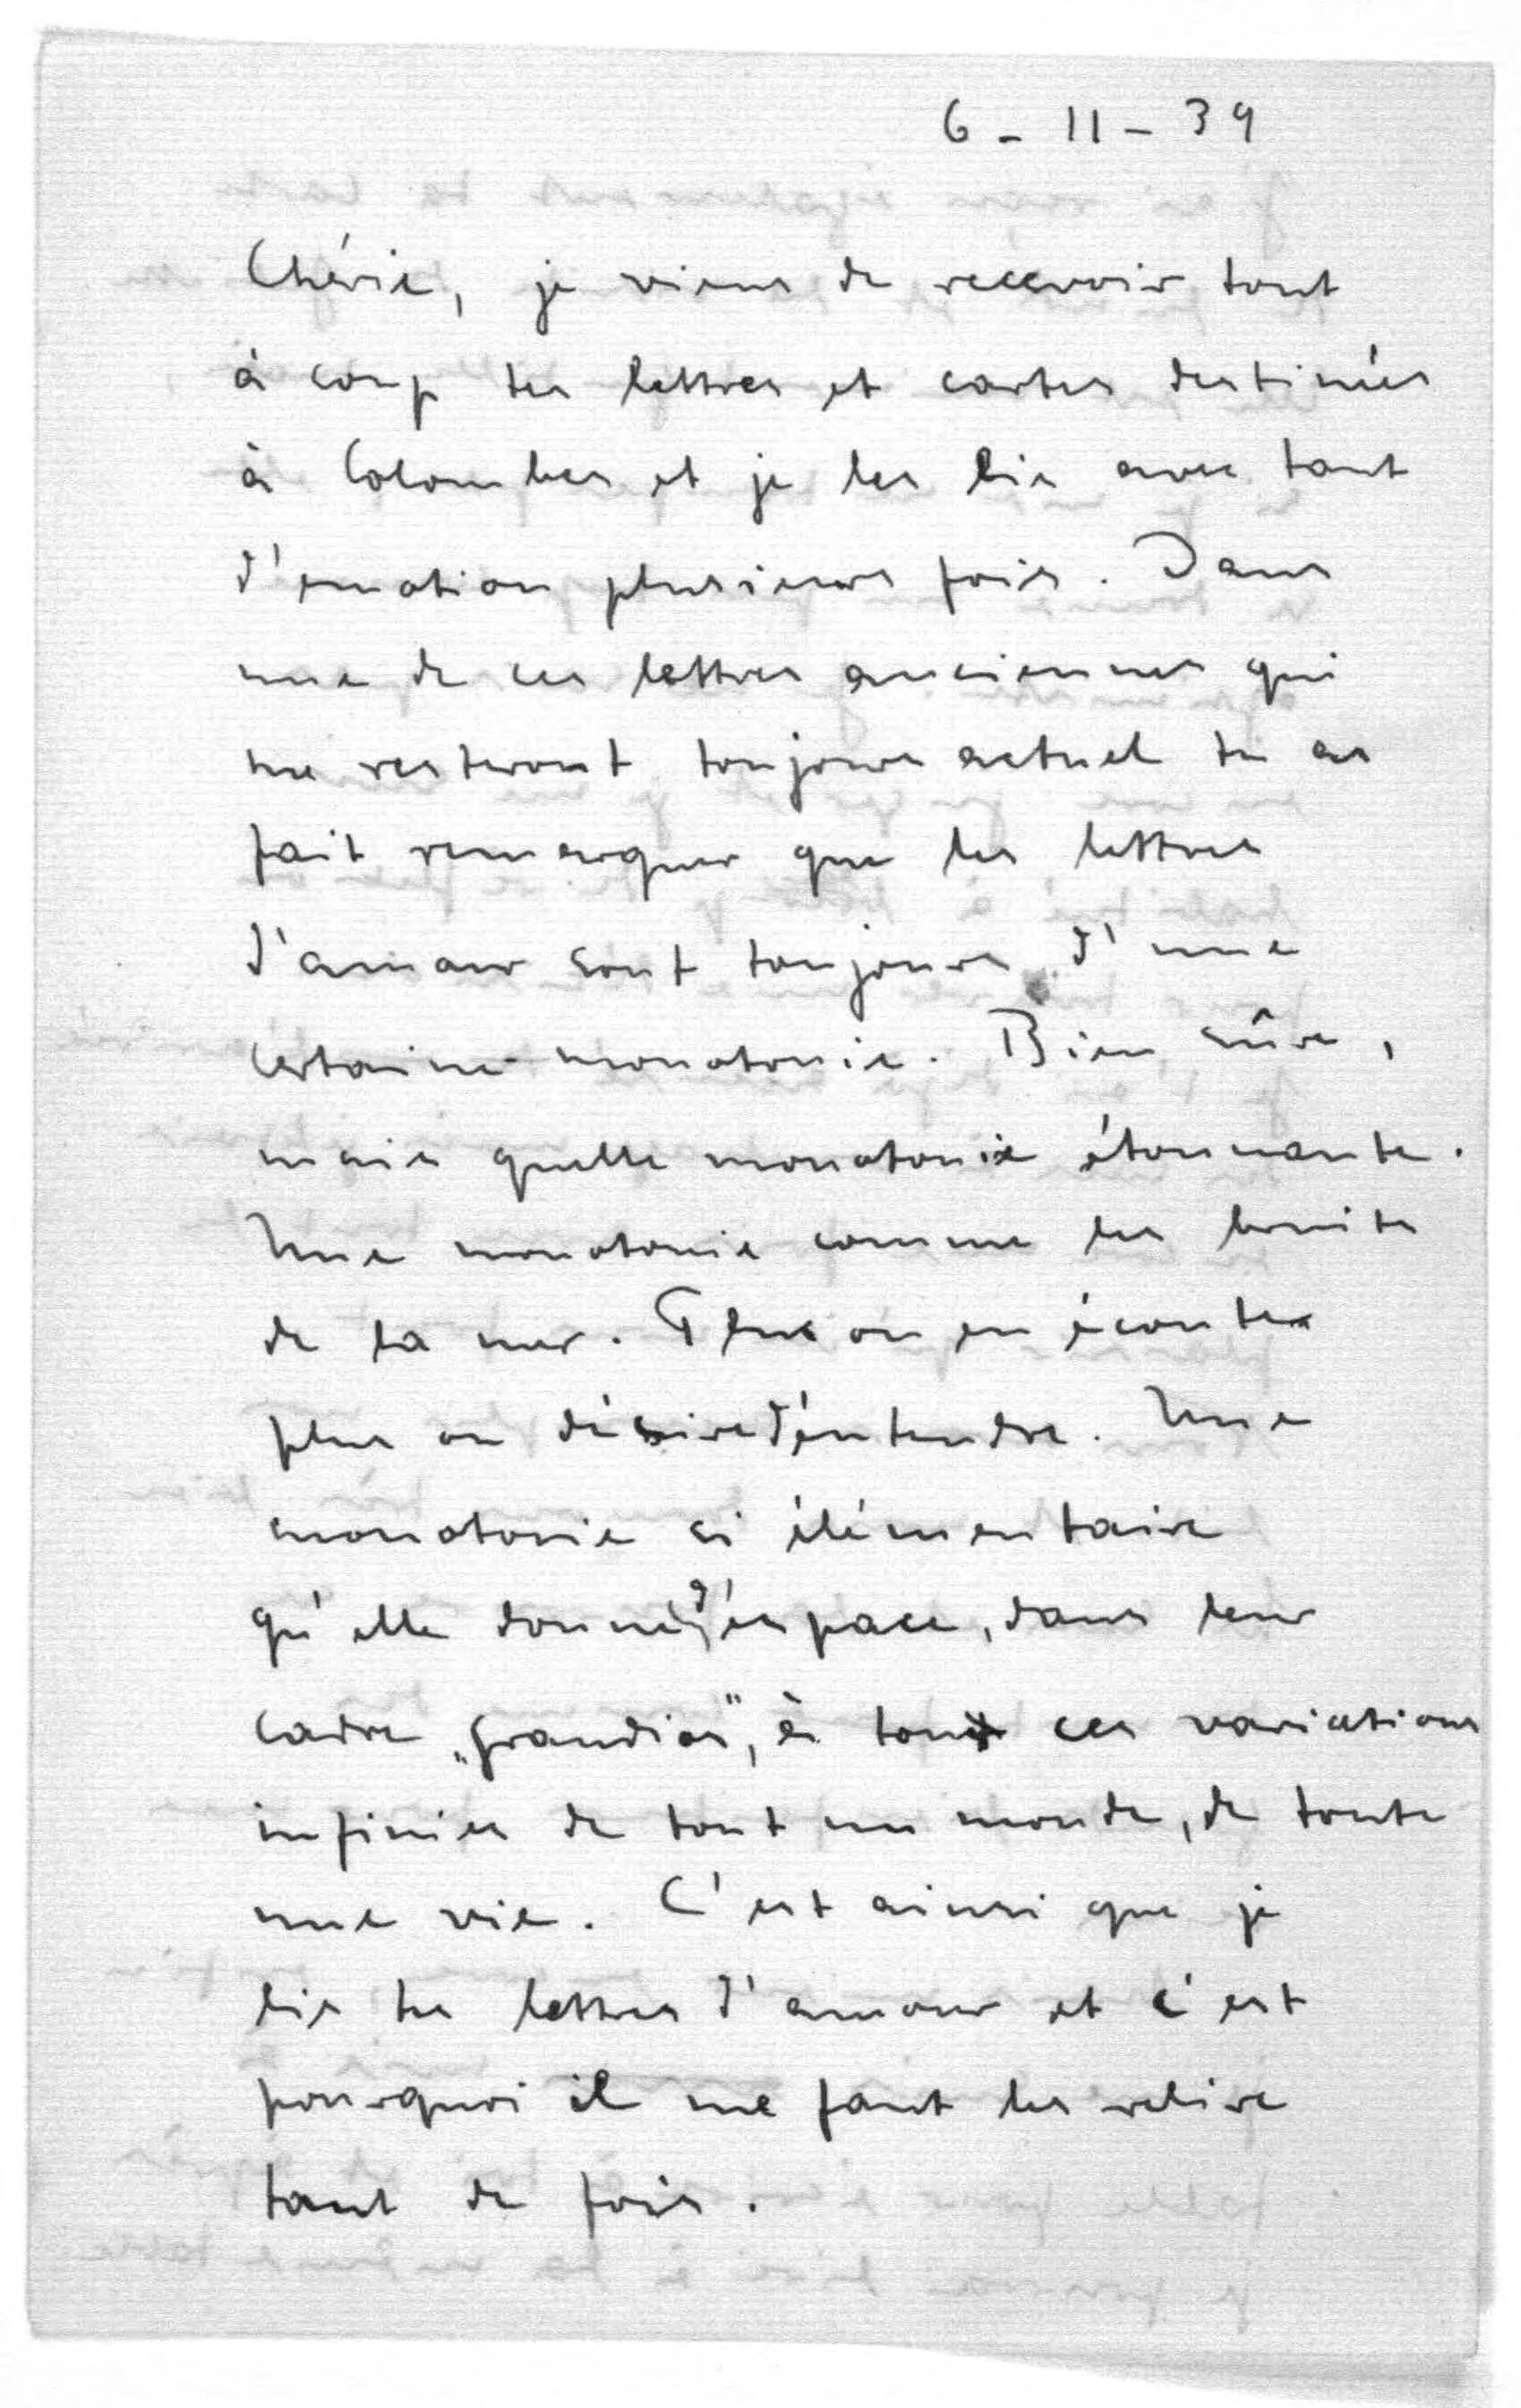 6 - 11 - 39
Chérie, je viens de recevoir tout
à coup tes lettres et cartes destinées
à Colombes et je les lis avec tant
d'emotion plusieurs fois. Dans
une de ces lettres anciennes qui
me resteront toujours actuel tu as
fait remarquer que les lettres
d'amour sont toujours d'une
certaine monotonie. Bien sûre,
mais quelle monotonie étonnante.
Une monotonie comme les bruits
de la mer. Plus on en écoute
plus on désire d'éntendre. Une
monotonie si élémentaire
qu'elle donne d'éspace, dans leur
cadre „grandios", à tout ces variations
infinies de tout un monde, de toute
une vie. C'est ainsi que je
lis tes lettres d'amour et c'est
pourquoi il me faut les relire
tant de fois.